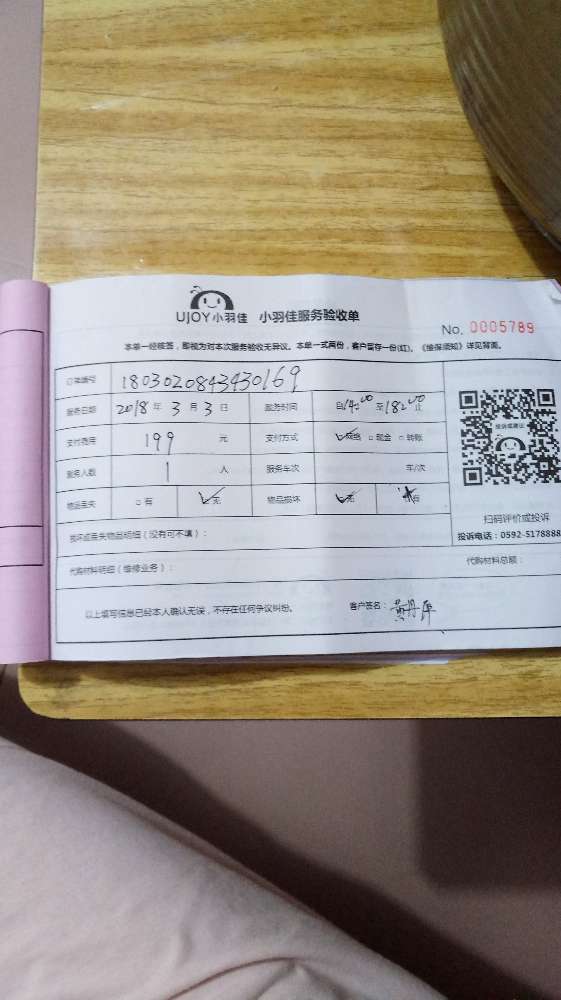 UJOY小羽佳 小羽佳服务验收单
No. 0005789
本单一经核签，即视为对本次服务验收无异议。本单一式两份，客户留存一份(红)。《维保须知》详见背面。
订单编号 1803020843430169
服务日期 2018年 3月 3日 服务时间 自14:00至18:00止
支付费用 199 元 支付方式 网络 □现金 □转账
服务人数 1 人 服务车次 车/次
物品丢失 □有 无 物品损坏 无
投诉或建议
扫码评价或投诉
投诉电话：0592-5178888
损坏或丢失物品明细（没有可不填）：
代购材料明细（维修业务）： 代购材料总额：
以上填写信息已经本人确认无误，不存在任何争议纠纷。 客户签名：黄丹萍